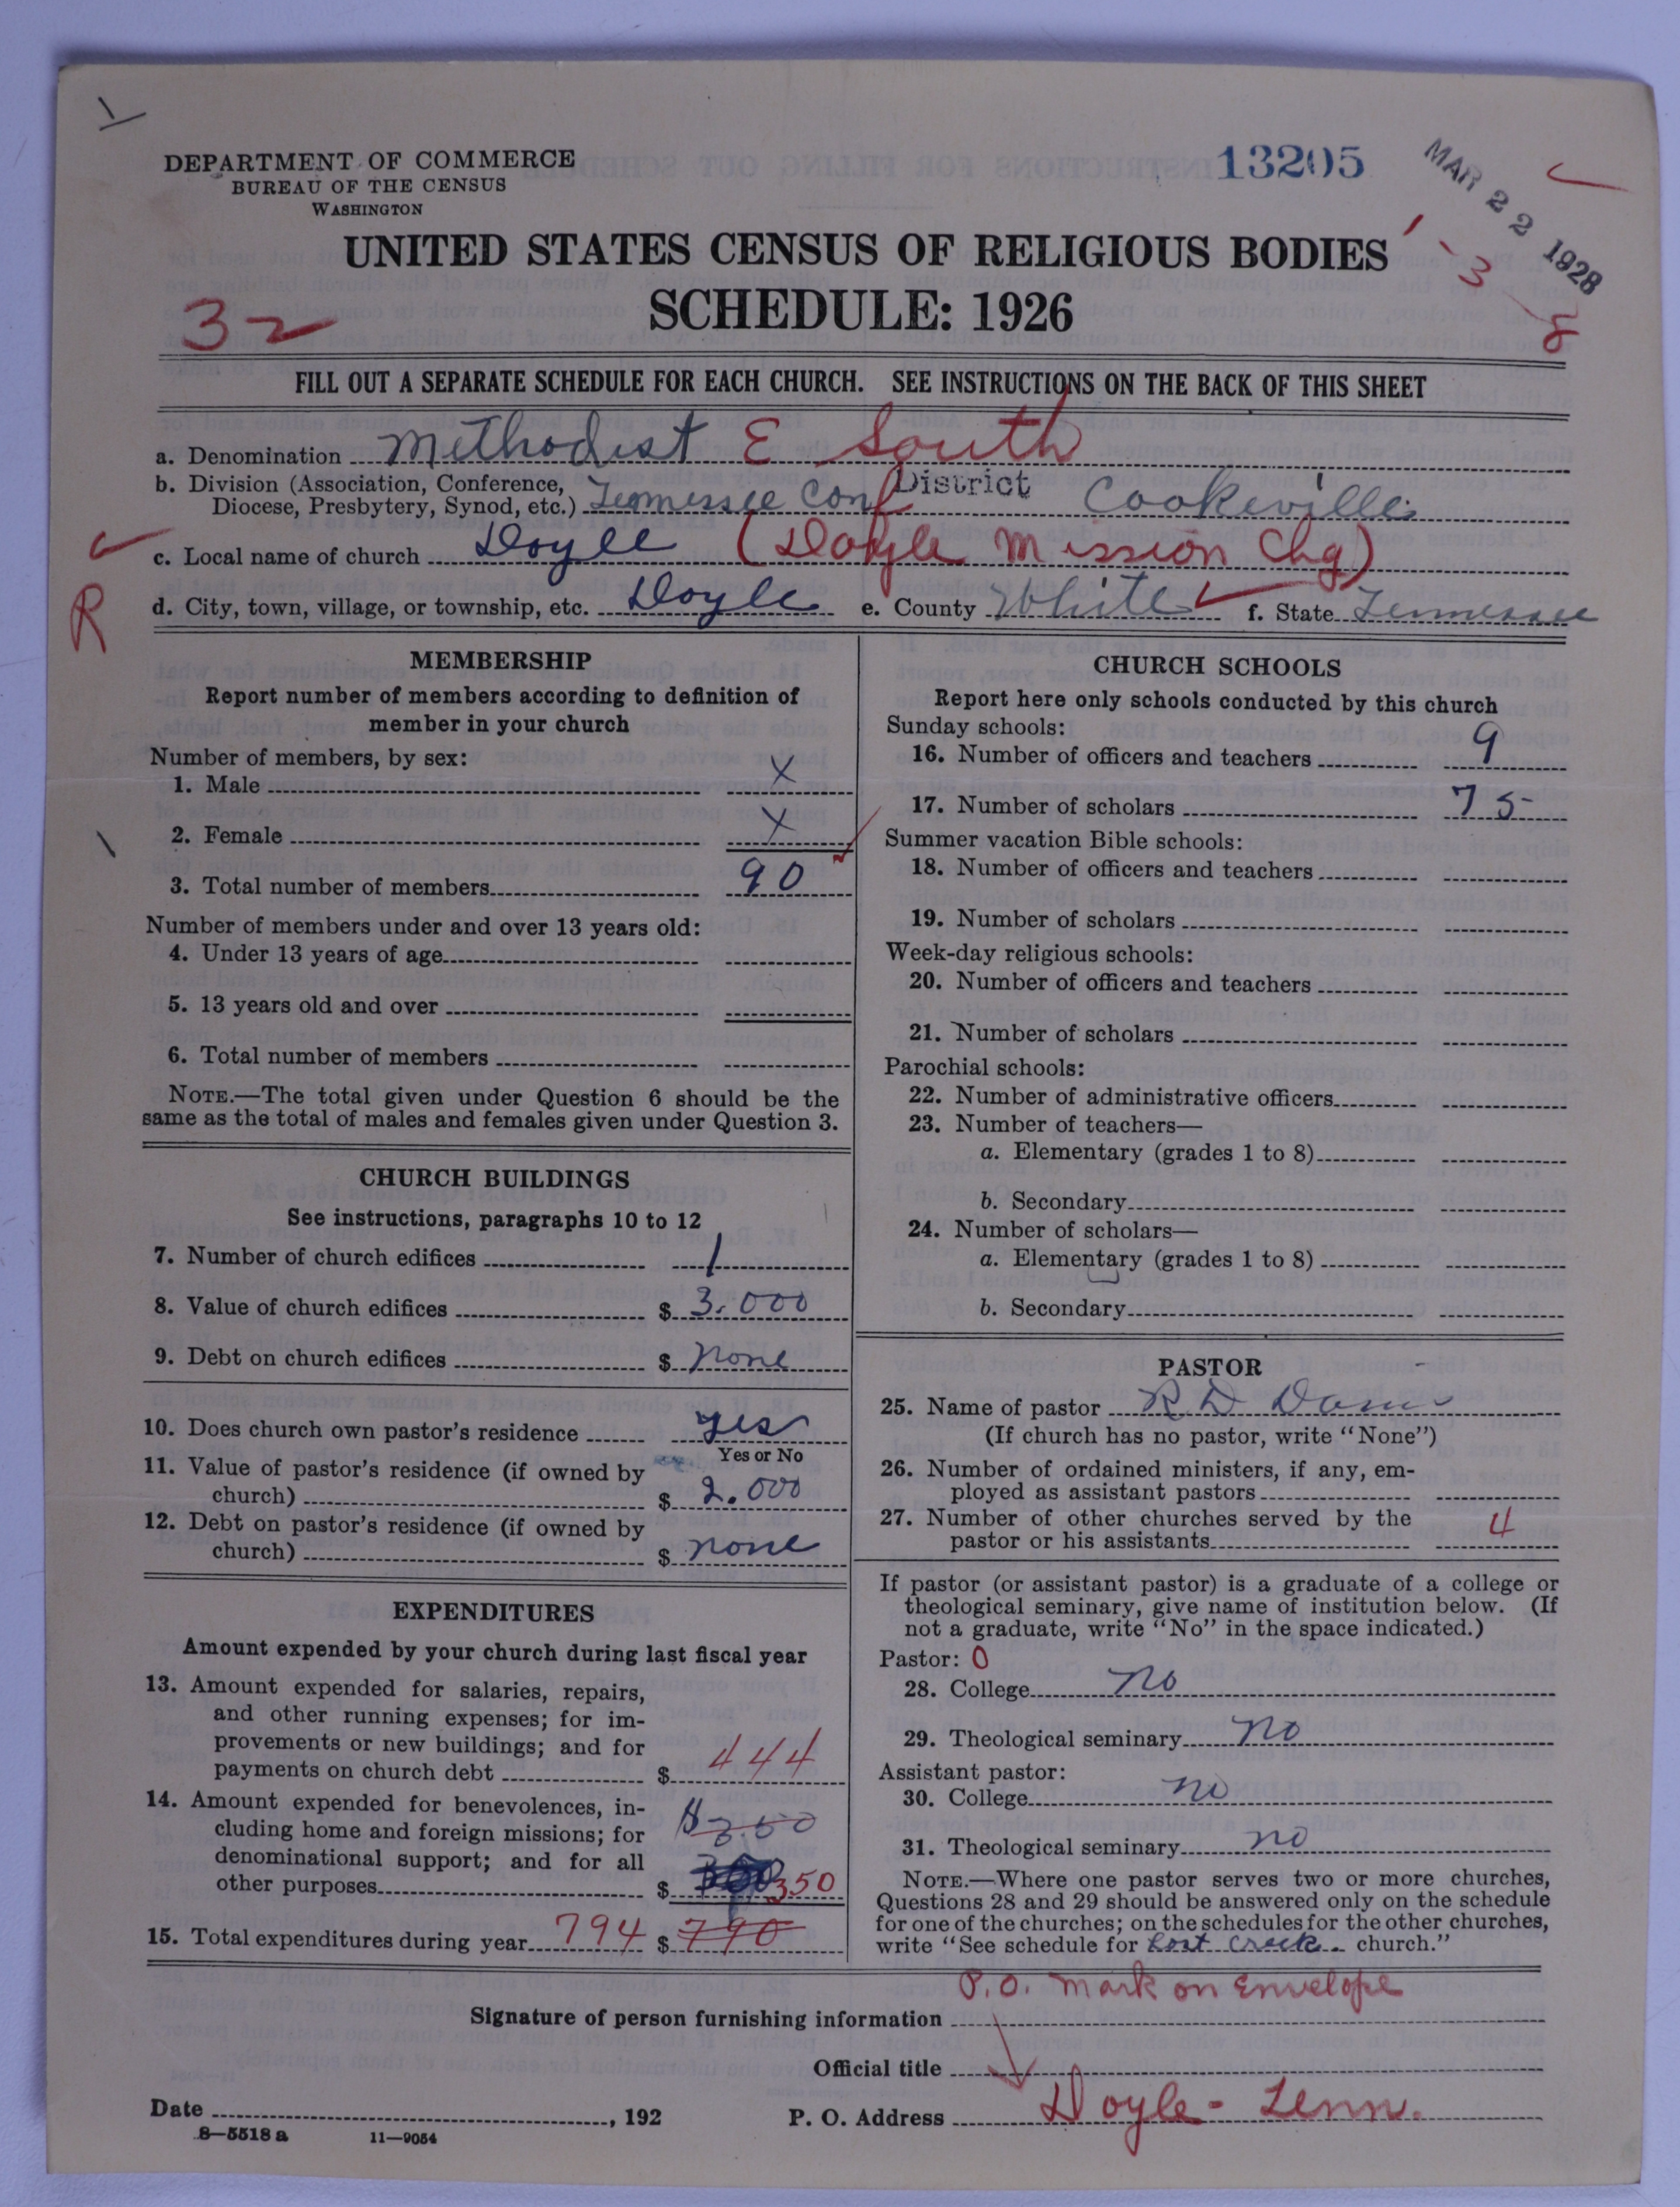 DEPARTMENT OF COMMERCE
BUREAU OF THE CENSUS
WASHINGTON
13205
MAR 22 1928
UNITED STATES CENSUS OF RELIGIOUS BODIES
1-3-8
SCHEDULE: 1926
32
FILL OUT A SEPARATE SCHEDULE FOR EACH CHURCH. SEE INSTRUCTIONS ON THE BACK OF THIS SHEET
a. Denomination Methodist E South
b. Division (Association, Conference, Diocese, Presbytery, Synod, etc.) Tennessee Conf District Cookeville
c. Local name of church Doyle (Doyle Mission Chg)
R
d. City, town, village, or township, etc. Doyle e. County White f. State Tennessee
MEMBERSHIP
Report number of members according to definition of
member in your church
Number of members, by sex:
1. Male X
2. Female X
3. Total number of members 90
Number of members under and over 13 years old:
4. Under 13 years of age
5. 13 years old and over
6. Total number of members
NOTE.—The total given under Question 6 should be the
same as the total of males and females given under Question 3.
CHURCH BUILDINGS
See instructions, paragraphs 10 to 12
7. Number of church edifices 1
8. Value of church edifices $ 3.000
9. Debt on church edifices $ none
10. Does church own pastor's residence yes
Yes or No
11. Value of pastor's residence (if owned by
church) $ 2.000
12. Debt on pastor's residence (if owned by
church) $ none
EXPENDITURES
Amount expended by your church during last fiscal year
13. Amount expended for salaries, repairs,
and other running expenses; for im-
provements or new buildings; and for
payments on church debt $ 444
14. Amount expended for benevolences, in-
cluding home and foreign missions; for $3.50
denominational support; and for all
other purposes $ 350
15. Total expenditures during year 794 $ 790
CHURCH SCHOOLS
Report here only schools conducted by this church
Sunday schools:
16. Number of officers and teachers 9
17. Number of scholars 75
Summer vacation Bible schools:
18. Number of officers and teachers
19. Number of scholars
Week-day religious schools:
20. Number of officers and teachers
21. Number of scholars
Parochial schools:
22. Number of administrative officers
23. Number of teachers—
a. Elementary (grades 1 to 8)
b. Secondary
24. Number of scholars—
a. Elementary (grades 1 to 8)
b. Secondary
PASTOR
25. Name of pastor R D
(If church has no pastor, write "None")
26. Number of ordained ministers, if any, em-
ployed as assistant pastors
27. Number of other churches served by the
pastor or his assistants 4
If pastor (or assistant pastor) is a graduate of a college or
theological seminary, give name of institution below. (If
not a graduate, write "No" in the space indicated.)
Pastor: 0
28. College no
29. Theological seminary no
Assistant pastor:
30. College no
31. Theological seminary no
NOTE.—Where one pastor serves two or more churches,
Questions 28 and 29 should be answered only on the schedule
for one of the churches; on the schedules for the other churches,
write "See schedule for Lost Creek church."
P.O. mark on Envelope
Signature of person furnishing information
Official title
Date , 192 P. O. Address Doyle - Tenn.
8—5518 a 11—9054